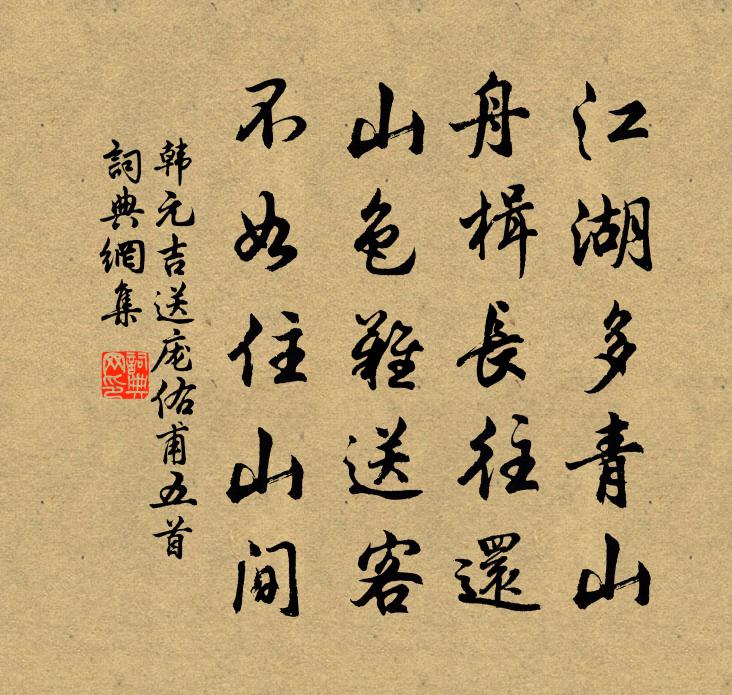 江湖多青山
舟楫長往還
山色難送客
不如住山间
韩元吉送庞佑甫五首
詞典網集
詞典网印